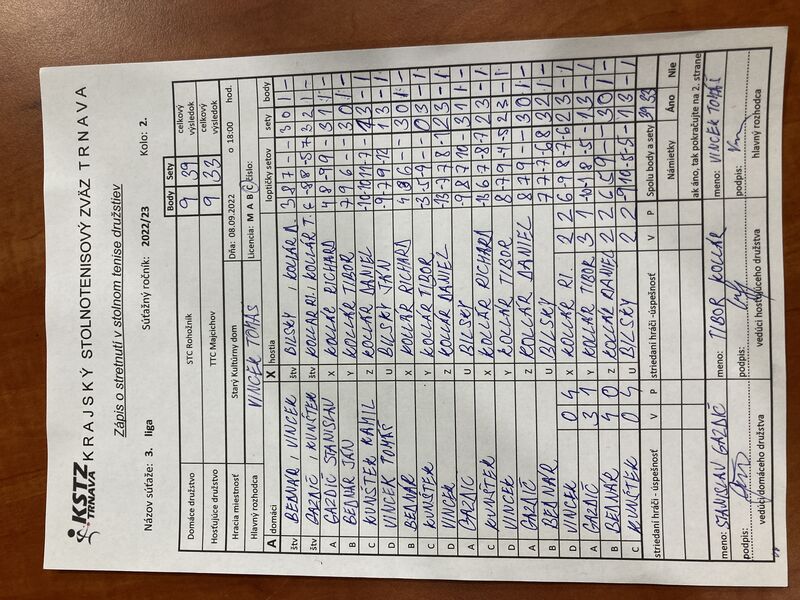 KSTZ TRNAVA KRAJSKÝ STOLNOTENISOVÝ ZVÄZ TRNAVA
Zápis o stretnutí v stolnom tenise družstiev
Názov súťaže: 3. liga Súťažný ročník: 2022/23 Kolo: 2.
Body Sety
Domáce družstvo STC Rohožník 9 39 celkový výsledok
Hosťujúce družstvo TTC Majcichov 9 33 celkový výsledok
Hracia miestnosť Starý kultúrny dom Dňa: 08.09.2022 o 18:00 hod.
Hlavný rozhodca VINCEK TOMÁŠ Licencia: M A B C číslo:
A domáci X hostia loptičky setov sety body
štv BEDNAR, VINCEK štv BILSKÝ, KOLLAR D. 3 8 7 - - 3 0 1 -
štv GAZDIČ, KUNŠTEK štv KOLLAR RI, KOLLÁR T. 3 2 1 -
A GAZDIČ STANISLAV X KOLLÁR RICHARD 3 1 1 -
B BEDNAR JÁN Y KOLLAR TIBOR 7 9 6 - - 3 0 1 -
C KUNŠTEK KAMIL Z KOLLAR DANIEL 1 3 - 1
D VINCEK TOMÁŠ U BILSKÝ JÁN 1 3 - 1
B BEDNAR X KOLLAR RICHARD 3 0 1 -
C KUNŠTEK Y KOLLAR TIBOR 0 3 - 1
D VINCEK Z KOLLAR DANIEL
A GAZDIČ U BILSKÝ 3 1 1 -
C KUNŠTEK X KOLLAR RICHARD 2 3 - 1
D VINCEK Y KOLLAR TIBOR 2 3 - 1
A GAZDIČ Z KOLLAR DANIEL 8 7 9 - - 3 0 1 -
B BEDNAR U BILSKÝ 3 2 1 -
D VINCEK 0 4 X KOLLAR RI. 2 2 2 3 - 1
A GAZDIČ 3 1 Y KOLLAR TIBOR 3 1 1 3 - 1
B BEDNAR 4 0 Z KOLLAR DANIEL 2 2 6 5 9 - - 3 0 1 -
C KUNŠTEK 0 4 U BILSKÝ 2 2 -9 10 -5 -5 - 1 3 - 1
striedaní hráči - úspešnosť V P striedaní hráči -úspešnosť V P Spolu body a sety 39 33
Námietky Áno Nie
ak áno, tak pokračujte na 2. strane
meno: STANISLAV GAZDIČ meno: TIBOR KOLLAR meno: VINCEK TOMÁŠ
podpis: podpis: podpis:
vedúci domáceho družstva vedúci hosťujúceho družstva hlavný rozhodca